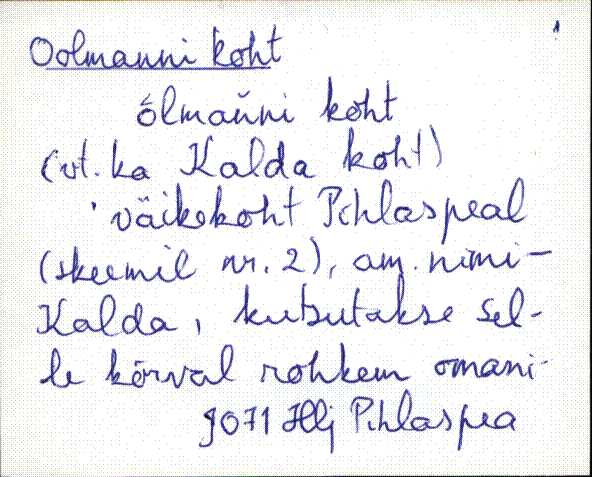 1
Oolmanni koht
ōlman̆ni koht
(vt. ka Kalda koht)
väikekoht Pihlaspeal
(skeemil nr. 2), am. nimi-
Kalda, kutsutakse sel-
le kõrval rohkem omani-
9071 Hlj Pihlaspea